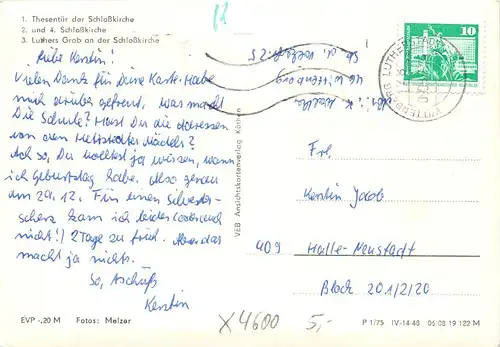 1. Thesentür der Schloßkirche
2. und 4. Schloßkirche
3. Luthers Grab an der Schloßkirche
Liebe Kerstin!
Vielen Dank für Deine Karte. Habe
mich drüber gefreut. Was macht
Die Schule? Hast Du die Adressen
von den Hettstedter Mädels?
Ach so, Du wolltest ja wissen, wann
ich Geburtstag habe. Also genau
am 29.12. Für einen Silvester-
scherz kam ich leider
nicht!) 2 Tage zu früh. Aber das
macht ja nichts.
So, Tschüß
Kerstin
EVP -,20 M Fotos: Melzer
X4600 5,-
VEB Ansichtskartenverlag Köthen
46 Wittenberg
10
LUTHERSTADT
WITTENBERG
Frl.
Kerstin Jacob
409 Halle-Neustadt
Block 201/2/20
P 1/75 IV-14-48 06 08 19 122 M